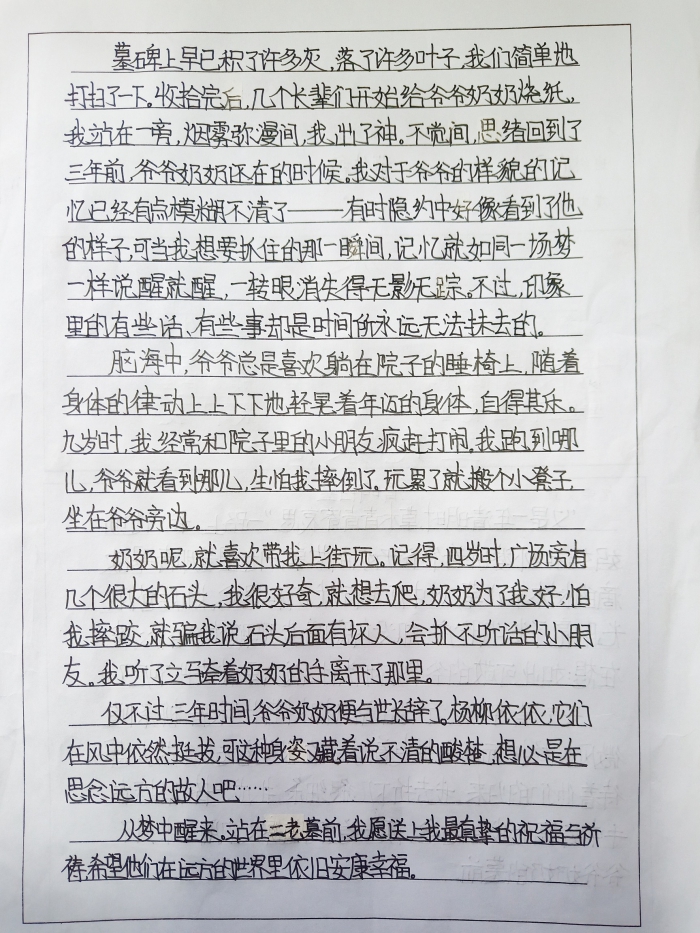 墓碑上早已积了许多灰，落了许多叶子，我们简单地
打扫了一下。收拾完后，几个长辈们开始给爷爷奶奶烧纸。
我站在一旁，烟雾弥漫间，我出了神。不觉间，思绪回到了
三年前，爷爷奶奶还在的时候。我对于爷爷的样貌的记
忆已经有点模糊不清了——有时隐约中好像看到了他
的样子，可当我想要抓住的那一瞬间，记忆就如同一场梦
一样说醒就醒，一转眼，消失得无影无踪。不过，印象
里的有些话、有些事却是时间所永远无法抹去的。
脑海中，爷爷总是喜欢躺在院子的睡椅上，随着
身体的律动上上下下地轻晃着年迈的身体，自得其乐。
九岁时，我经常和院子里的小朋友疯赶打闹。我跑到哪
儿，爷爷就看到那儿，生怕我摔倒了。玩累了就搬个小凳子，
坐在爷爷旁边。
奶奶呢，就喜欢带我上街玩。记得，四岁时，广场旁有
几个很大的石头，我很好奇，就想去爬，奶奶为了我好，怕
我摔跤，就骗我说石头后面有坏人，会扒不听话的小朋
友。我听了立马牵着奶奶的手离开了那里。
仅不过三年时间，爷爷奶奶便与世长辞了。杨柳依依，它们
在风中依然挺拔，可这种身姿又藏着说不清的酸楚，想必是在
思念远方的故人吧……
从梦中醒来。站在二老墓前，我愿送上我最真挚的祝福与祈
祷，希望他们在远方的世界里依旧安康幸福。